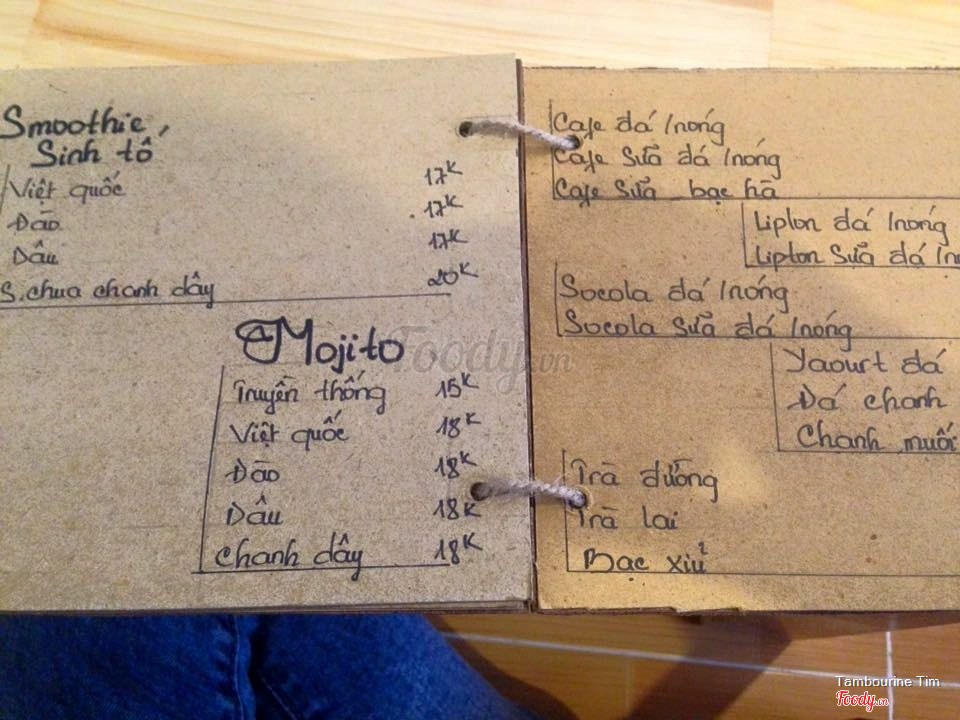 Smoothie,
Sinh tố
Việt quốc 17K
Đào 17K
Dâu 17K
S.chua chanh dây 20K
Mojito
Truyền thống 15K
Việt quốc 18K
Đào 18K
Dâu 18K
Chanh dây 18K
Cafe đá /nóng
Cafe Sữa đá /nóng
Cafe Sữa bạc hà
Lipton đá /nóng
Lipton Sữa đá /nó
Socola đá /nóng
Socola Sữa đá /nóng
Yaourt đá
Đá chanh
Chanh muối
Trà đường
Trà lài
Bạc xỉu
Foody.vn
Tambourine Tim
Foody.vn